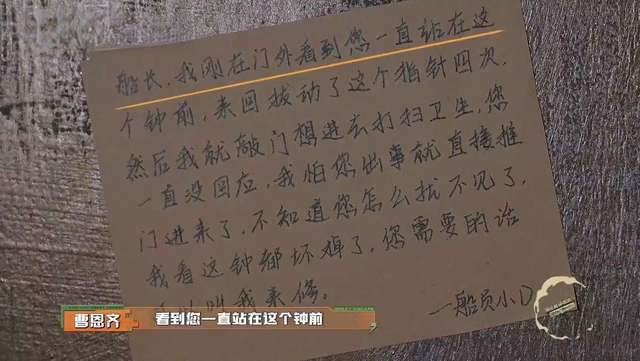 船长，我刚在门外看到您一直站在这
个钟前，来回拨动了这个指针四次，
然后我就敲门想进去打扫卫生，您
一直没回应，我怕您出事就直接推
门进来了，不知道您怎么就不见了，
我看这钟都坏掉了，您需要的话
叫我来修。
一船员小D
曹恩齐
看到您一直站在这个钟前